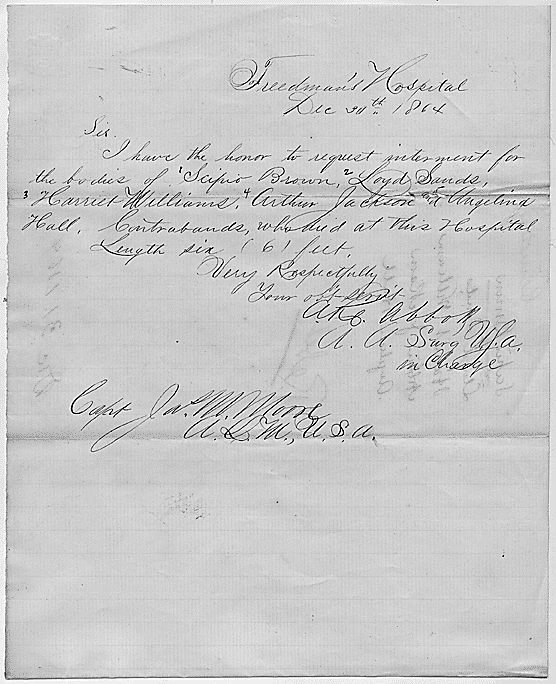 Freedman's Hospital
Dec 1864
Sir.
I have the honor to request interment for
the bodies of 1 Scipio Brown, 2 Loyd Sands,
3 Harriet Williams, 4 Arthur Jackson and 5 Angelina
Hall, Contrabands, who died at this Hospital
Length six (6) feet.
Very Respectfully
Your obt servt
A. R. Abbott
A. A. Surg U.S.A.
in Charge
Capt Jas. M. Moore
A. Q. M., U.S.A.